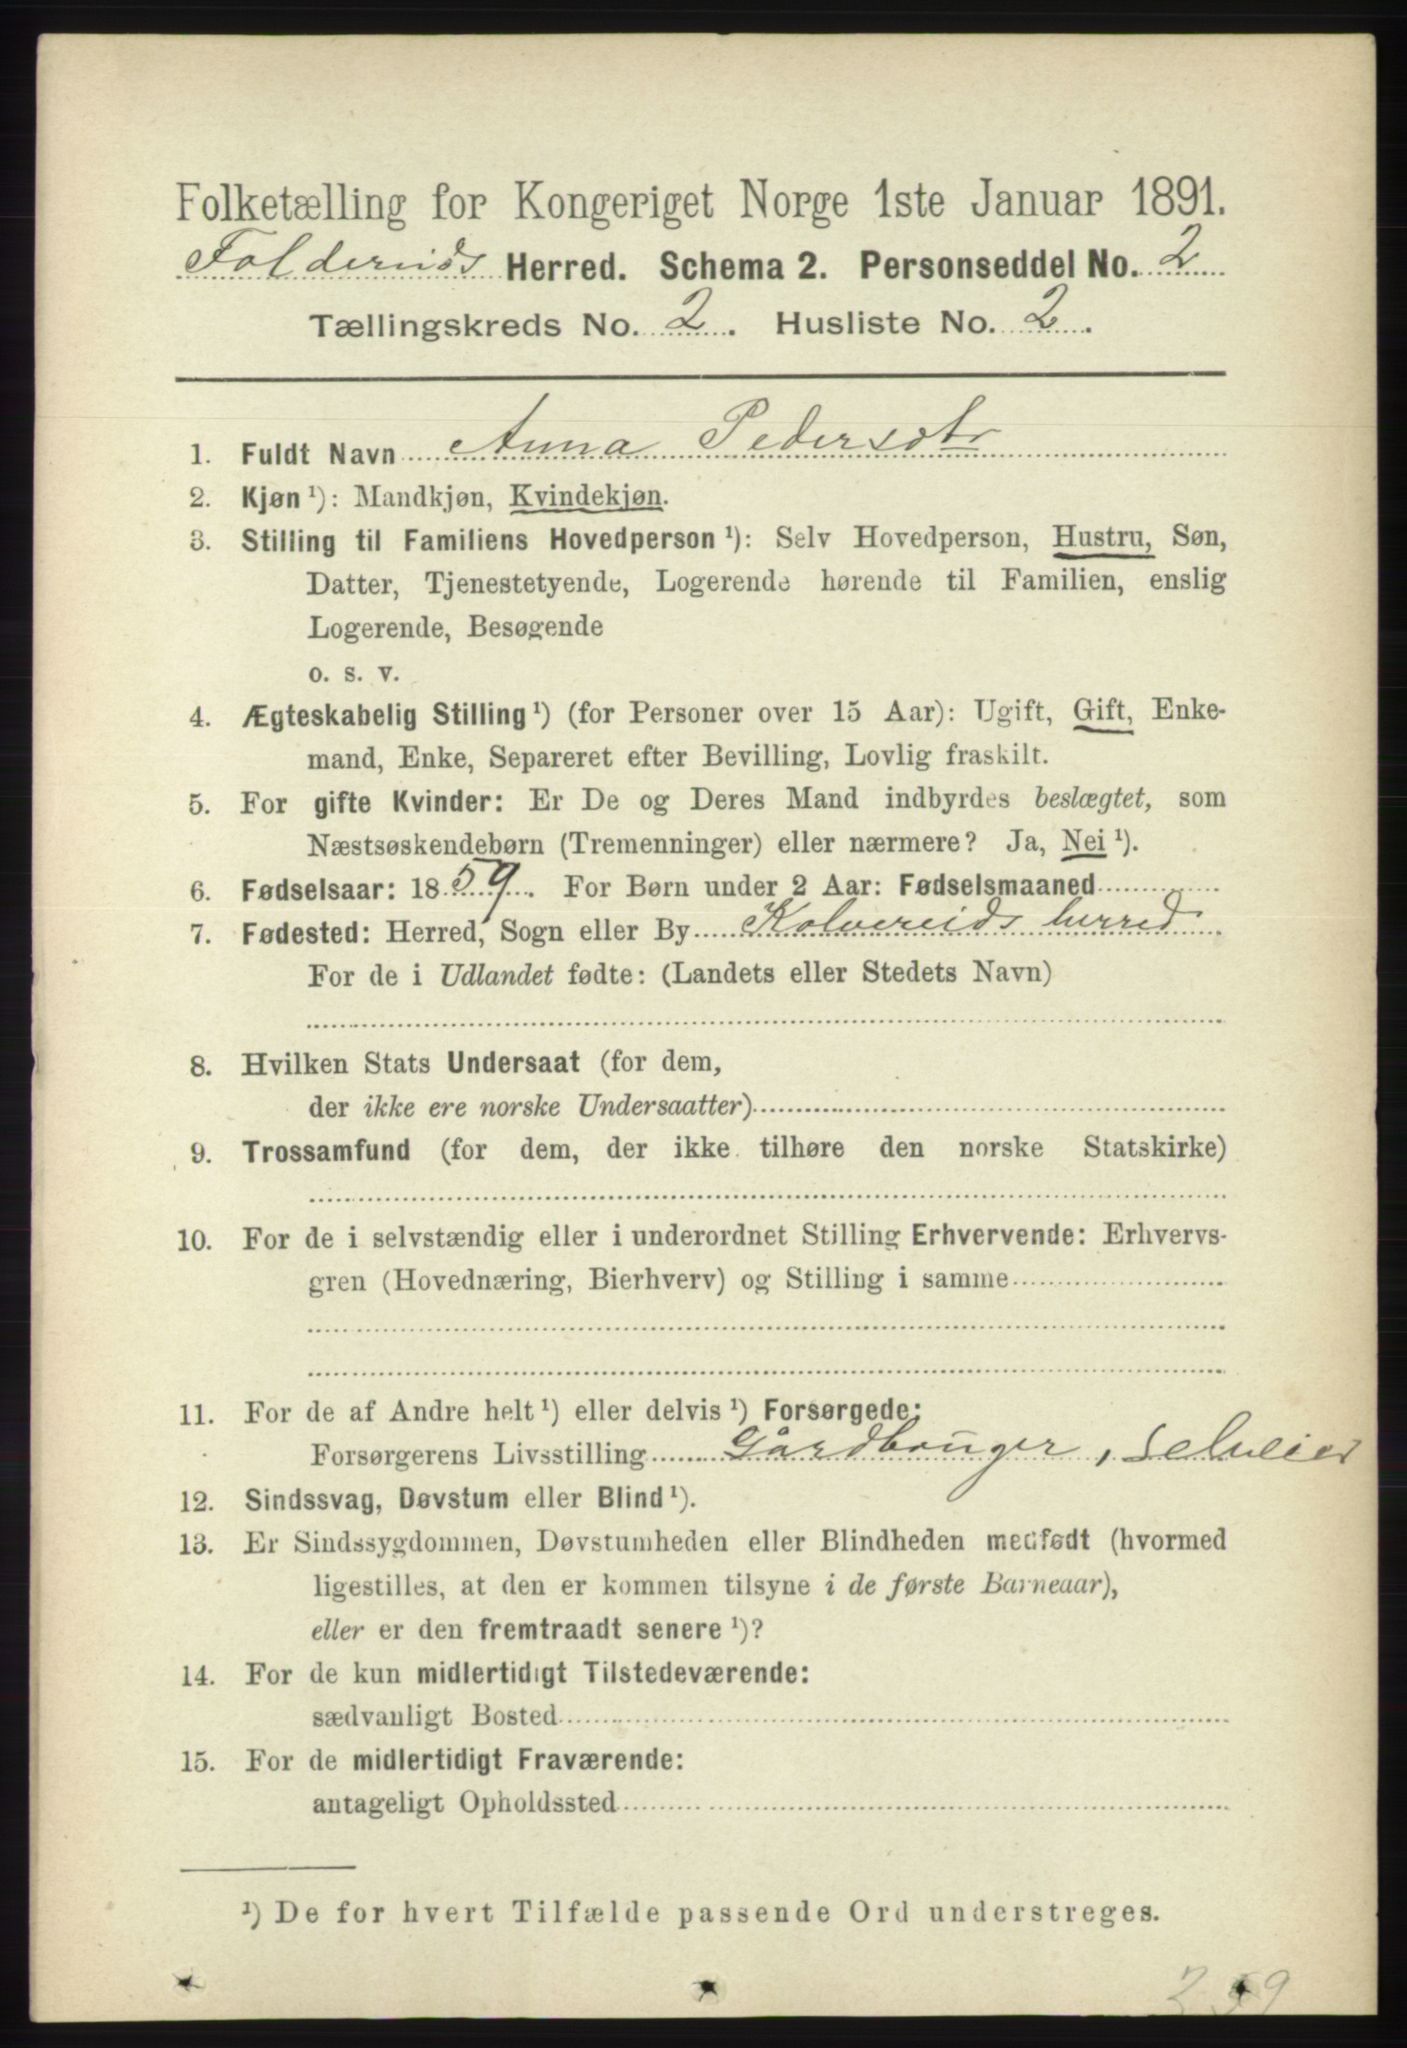 Folketælling for Kongeriget Norge 1ste Januar 1891.
Foldereids Herred. Schema 2. Personseddel No. 2
Tællingskreds No. 2. Husliste No. 2.
1. Fuldt Navn Anna Pedersdtr
2. Kjøn ¹): Mandkjøn, Kvindekjøn.
3. Stilling til Familiens Hovedperson ¹): Selv Hovedperson, Hustru, Søn,
Datter, Tjenestetyende, Logerende hørende til Familien, enslig
Logerende, Besøgende
o. s. v.
4. Ægteskabelig Stilling ¹) (for Personer over 15 Aar): Ugift, Gift, Enke-
mand, Enke, Separeret efter Bevilling, Lovlig fraskilt.
5. For gifte Kvinder: Er De og Deres Mand indbyrdes beslægtet, som
Næstsøskendebørn (Tremenninger) eller nærmere? Ja, Nei ¹).
6. Fødselsaar: 1859. For Børn under 2 Aar: Fødselsmaaned
7. Fødested: Herred, Sogn eller By Kolvereids herred
For de i Udlandet fødte: (Landets eller Stedets Navn)
8. Hvilken Stats Undersaat (for dem,
der ikke ere norske Undersaatter)
9. Trossamfund (for dem, der ikke tilhøre den norske Statskirke)
10. For de i selvstændig eller i underordnet Stilling Erhvervende: Erhvervs-
gren (Hovednæring, Bierhverv) og Stilling i samme
11. For de af Andre helt ¹) eller delvis ¹) Forsørgede:
Forsørgerens Livsstilling Gårdbruger, selveier
12. Sindssvag, Døvstum eller Blind ¹).
13. Er Sindssygdommen, Døvstumheden eller Blindheden medfødt (hvormed
ligestilles, at den er kommen tilsyne i de første Barneaar),
eller er den fremtraadt senere ¹)?
14. For de kun midlertidigt Tilstedeværende:
sædvanligt Bosted
15. For de midlertidigt Fraværende:
antageligt Opholdssted
¹) De for hvert Tilfælde passende Ord understreges.
259